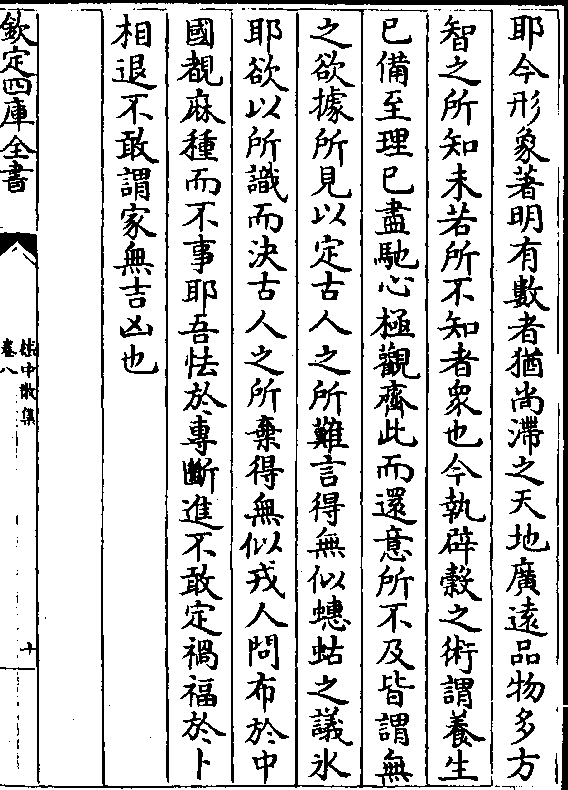 耶今形象著明有數者猶尚滯之天地廣逺品物多方
智之所知未若所不知者衆也今執辟糓之術謂養生
已備至理已盡馳心極觀齊此而還意所不及皆謂無
之欲據所見以定古人之所難言得無似蟪蛄之議氷
耶欲以所識而決古人之所棄得無似戎人問布於中
國覩麻種而不事耶吾怯於專斷進不敢定禍福於卜
相退不敢謂家無吉凶也
欽定四庫全書
嵇中散集
卷八
十